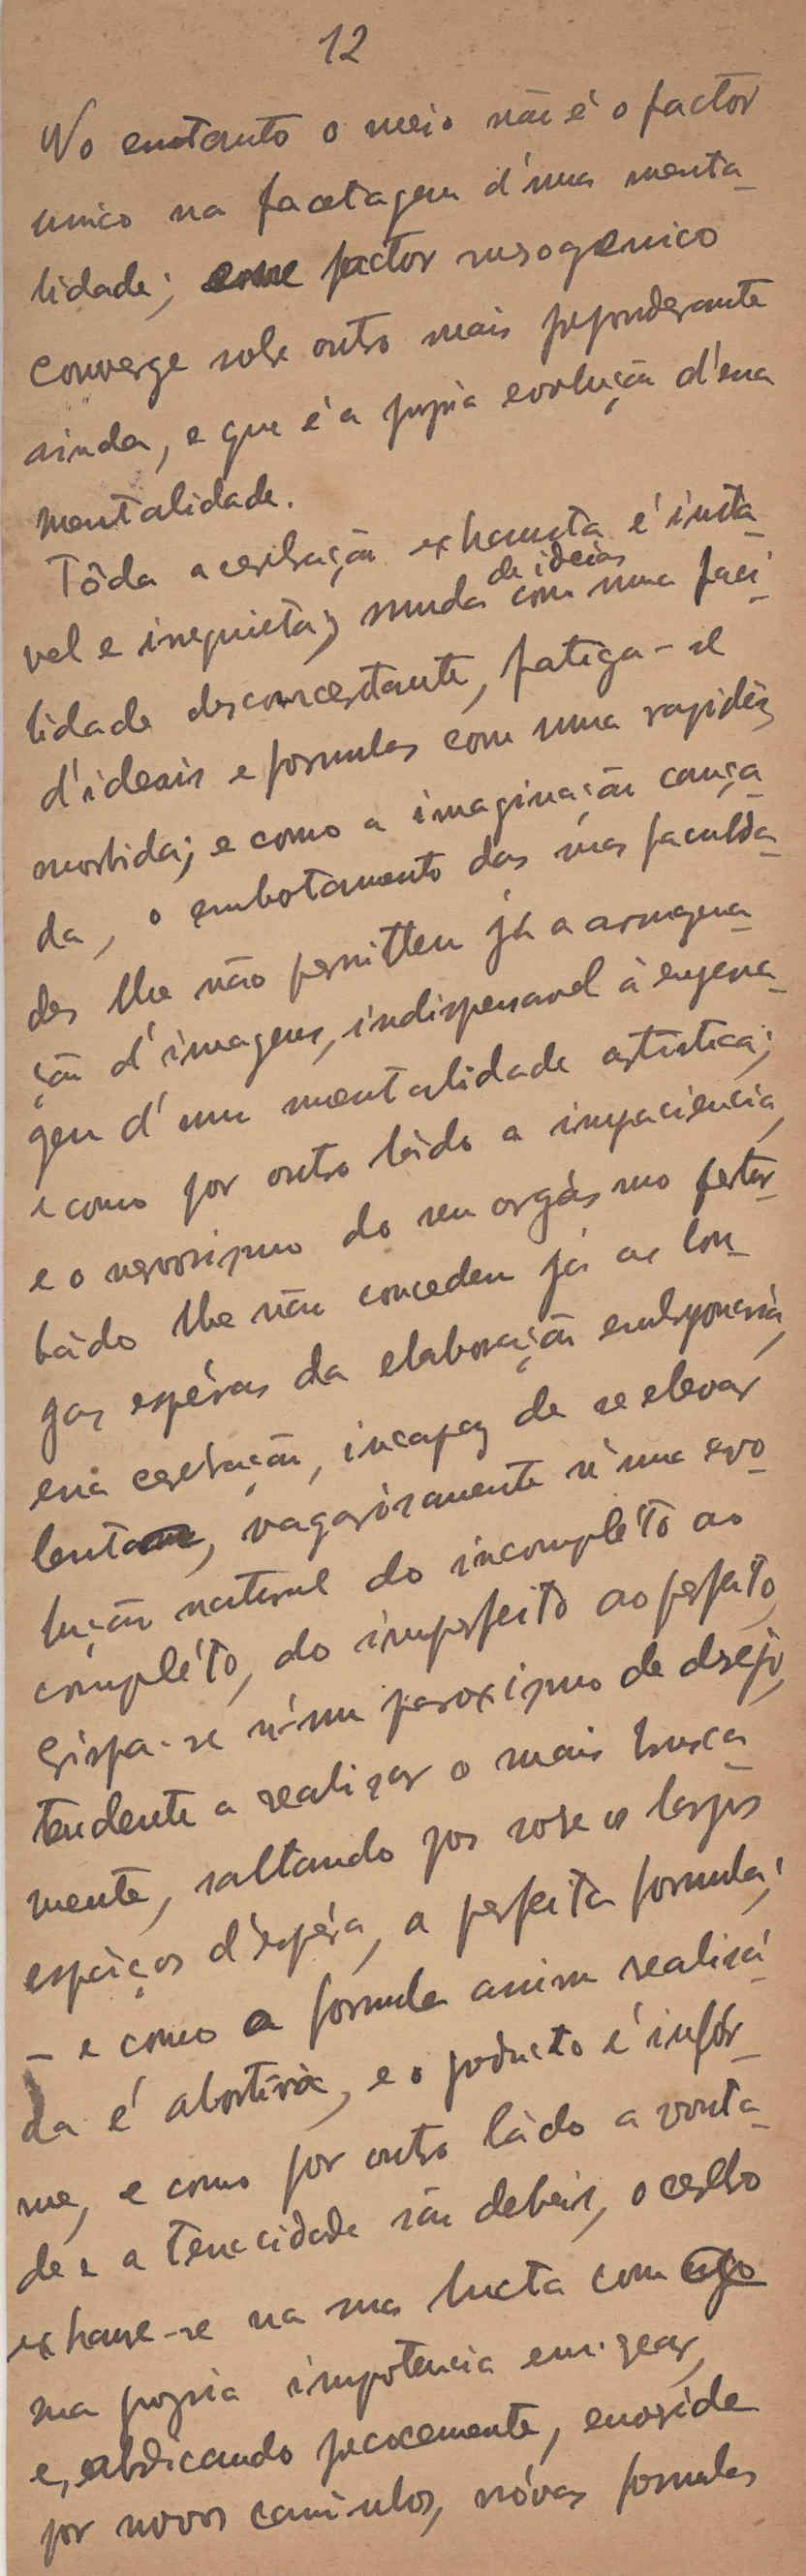 12
No emtanto o meio não é o factor
unico na facetagem d'uma menta-
lidade; esse factor mesogenico
converge sobre outro mais preponderante
ainda, e que é a propria evolução d'essa
mentalidade.
Tôda a cerebração exhausta é insta-
vel e inquieta; muda de ideias com uma faci-
lidade desconcertante, fatiga-se
d'ideais e formulas com uma rapidêz
morbida; e como a imaginação cança-
da, o embotamento das suas faculda-
des lhe não permittem já a armazena-
ção d'imagens, indispensavel à
d'uma mentalidade artistica;
e como por outroládo a impaciencia,
e o nevrosismo do seu orgásmo pertur-
bádo lhe não concedem já as lon-
gas espéras da elaboração embryonaria,
essa cerebração, incapaz de se elevar
lenta, vagarósamente n'uma evo-
lução natural do incompléto ao
compléto, do imperfeito ao perfeito,
crispa-se n'um paroxismo de desejo,
tendente a realizar o mais brusca-
mente, saltando por sobre os largos
espáços d'espéra, a perfeita formula;
– e como a formula assim realisá-
da é abortiva, e o producto é infór-
me, e como por outro ládo a vonta-
de e a tenacidade são debeis, o cerebro
exhaure-se na sua lucta com
sua propria impotencia em gerar,
e, abdicando precocemente, enveréda
por novos caminhos, nóvas formulas